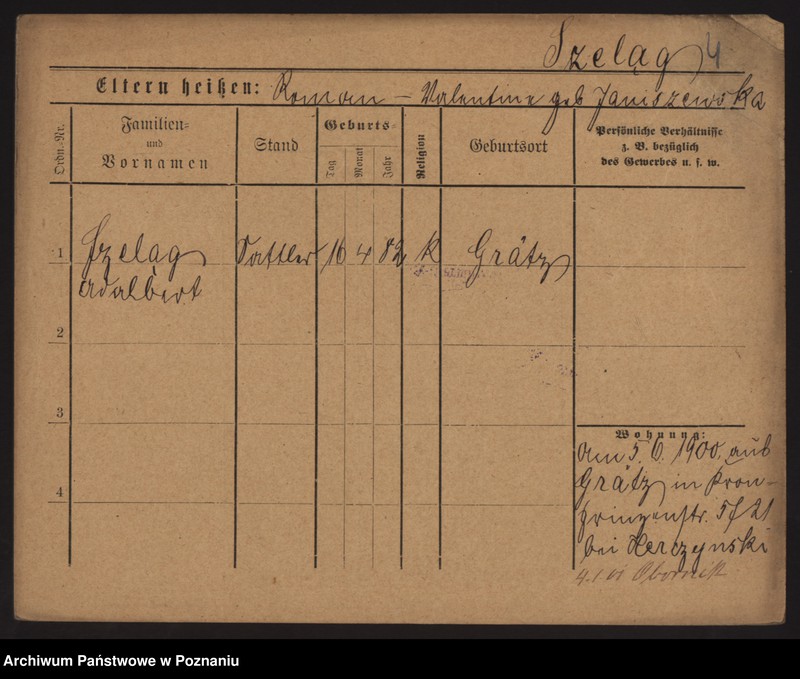 Szeląg 4
Eltern heißen: Roman – Valentine geb Janiszewska
Ordn.-Nr.
Familien-
und
Vornamen
Stand
Geburts-
Tag
Monat
Jahr
Religion
Geburtsort
Persönliche Verhältnisse
z. B. bezüglich
des Gewerbes u. s. w.
1 Szeląg Sattler 16 4 82 K Grätz
Adalbert
2
3
4
Wohnung:
am 5. 6. 1900. aus
Grätz in Kron-
prinzenstr. 57 21
bei Herczynski
4.1 01 Obornik
Archiwum Państwowe w Poznaniu